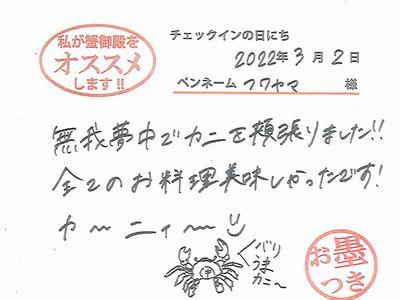 私が蟹御殿を
オススメ
します!!
チェックインの日にち
2022年3月2日
ペンネーム フクヤマ 様
無我夢中でカニを頬張りました!!
全てのお料理美味しかったです!
カ〜ニィ〜
バリ
うま
カニ〜
お墨
つき